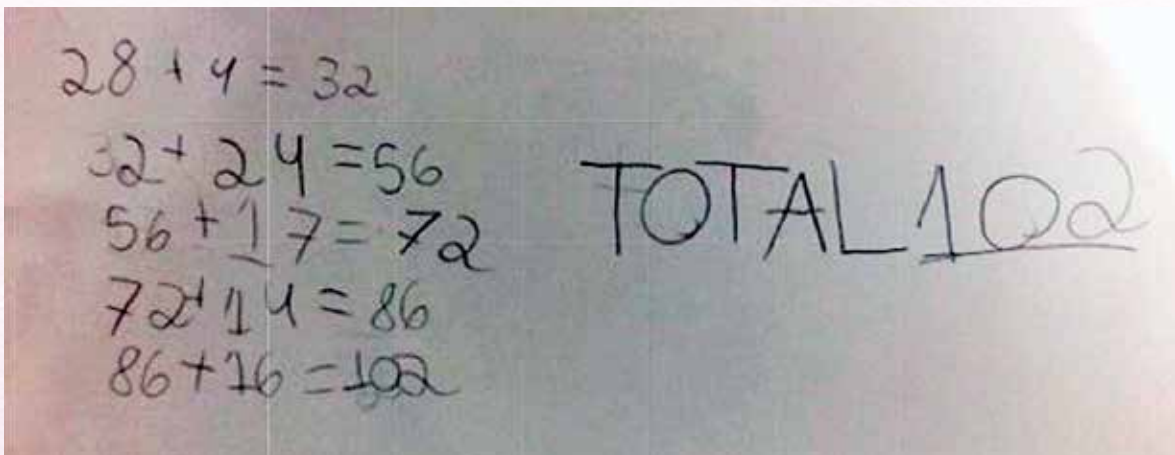 28 + 4 = 32
32 + 24 = 56
56 + 17 = 72
72 + 14 = 86
86 + 16 = 102
TOTAL 102